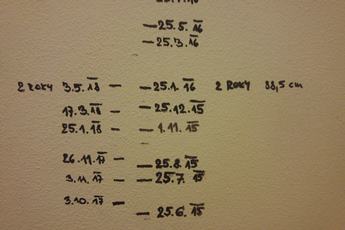 – 25.5. 16
– 25.3. 16
2 ROKY 3.5. 18 – – 25.1. 16 2 ROKY 88,5 cm
17.3. 18 – – 25.12. 15
25.1. 18 – – 1.11. 15
26.11. 17 – – 25.8. 15
3.11. 17 – – 25.7. 15
3.10. 17 –
– 25.6. 15